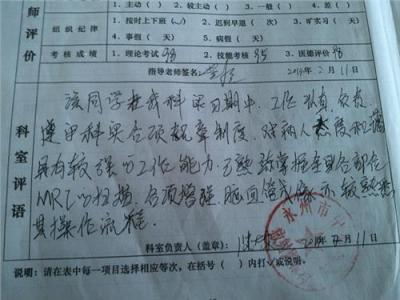 师评价
1. 主动（ ） 2. 较主动（ ） 3. 一般（ ） 4. 差（ ）
组织纪律
1. 按时上下班（✓） 2. 迟到早退（ 次） 3. 旷实习（ 天）
4. 事假（ 天） 5. 病假（ 天）
考核成绩
1. 理论考试98 2. 技能考核95 3. 医德评价98
指导老师签名： 2014年2月11日
科室评语
该同学在我科实习期中，工作认真、负责，
遵守科室各项规章制度，对病人态度和蔼
具有较强的工作能力，已熟练掌握全身各部位
MRI的扫描，各项增强、脑血管成像亦较熟悉
其操作流程。
永州市
科室负责人（盖章）： 2014年2月11日
说明：请在表中每一项目选择相应等次，在括号（ ）内打✓或说明。